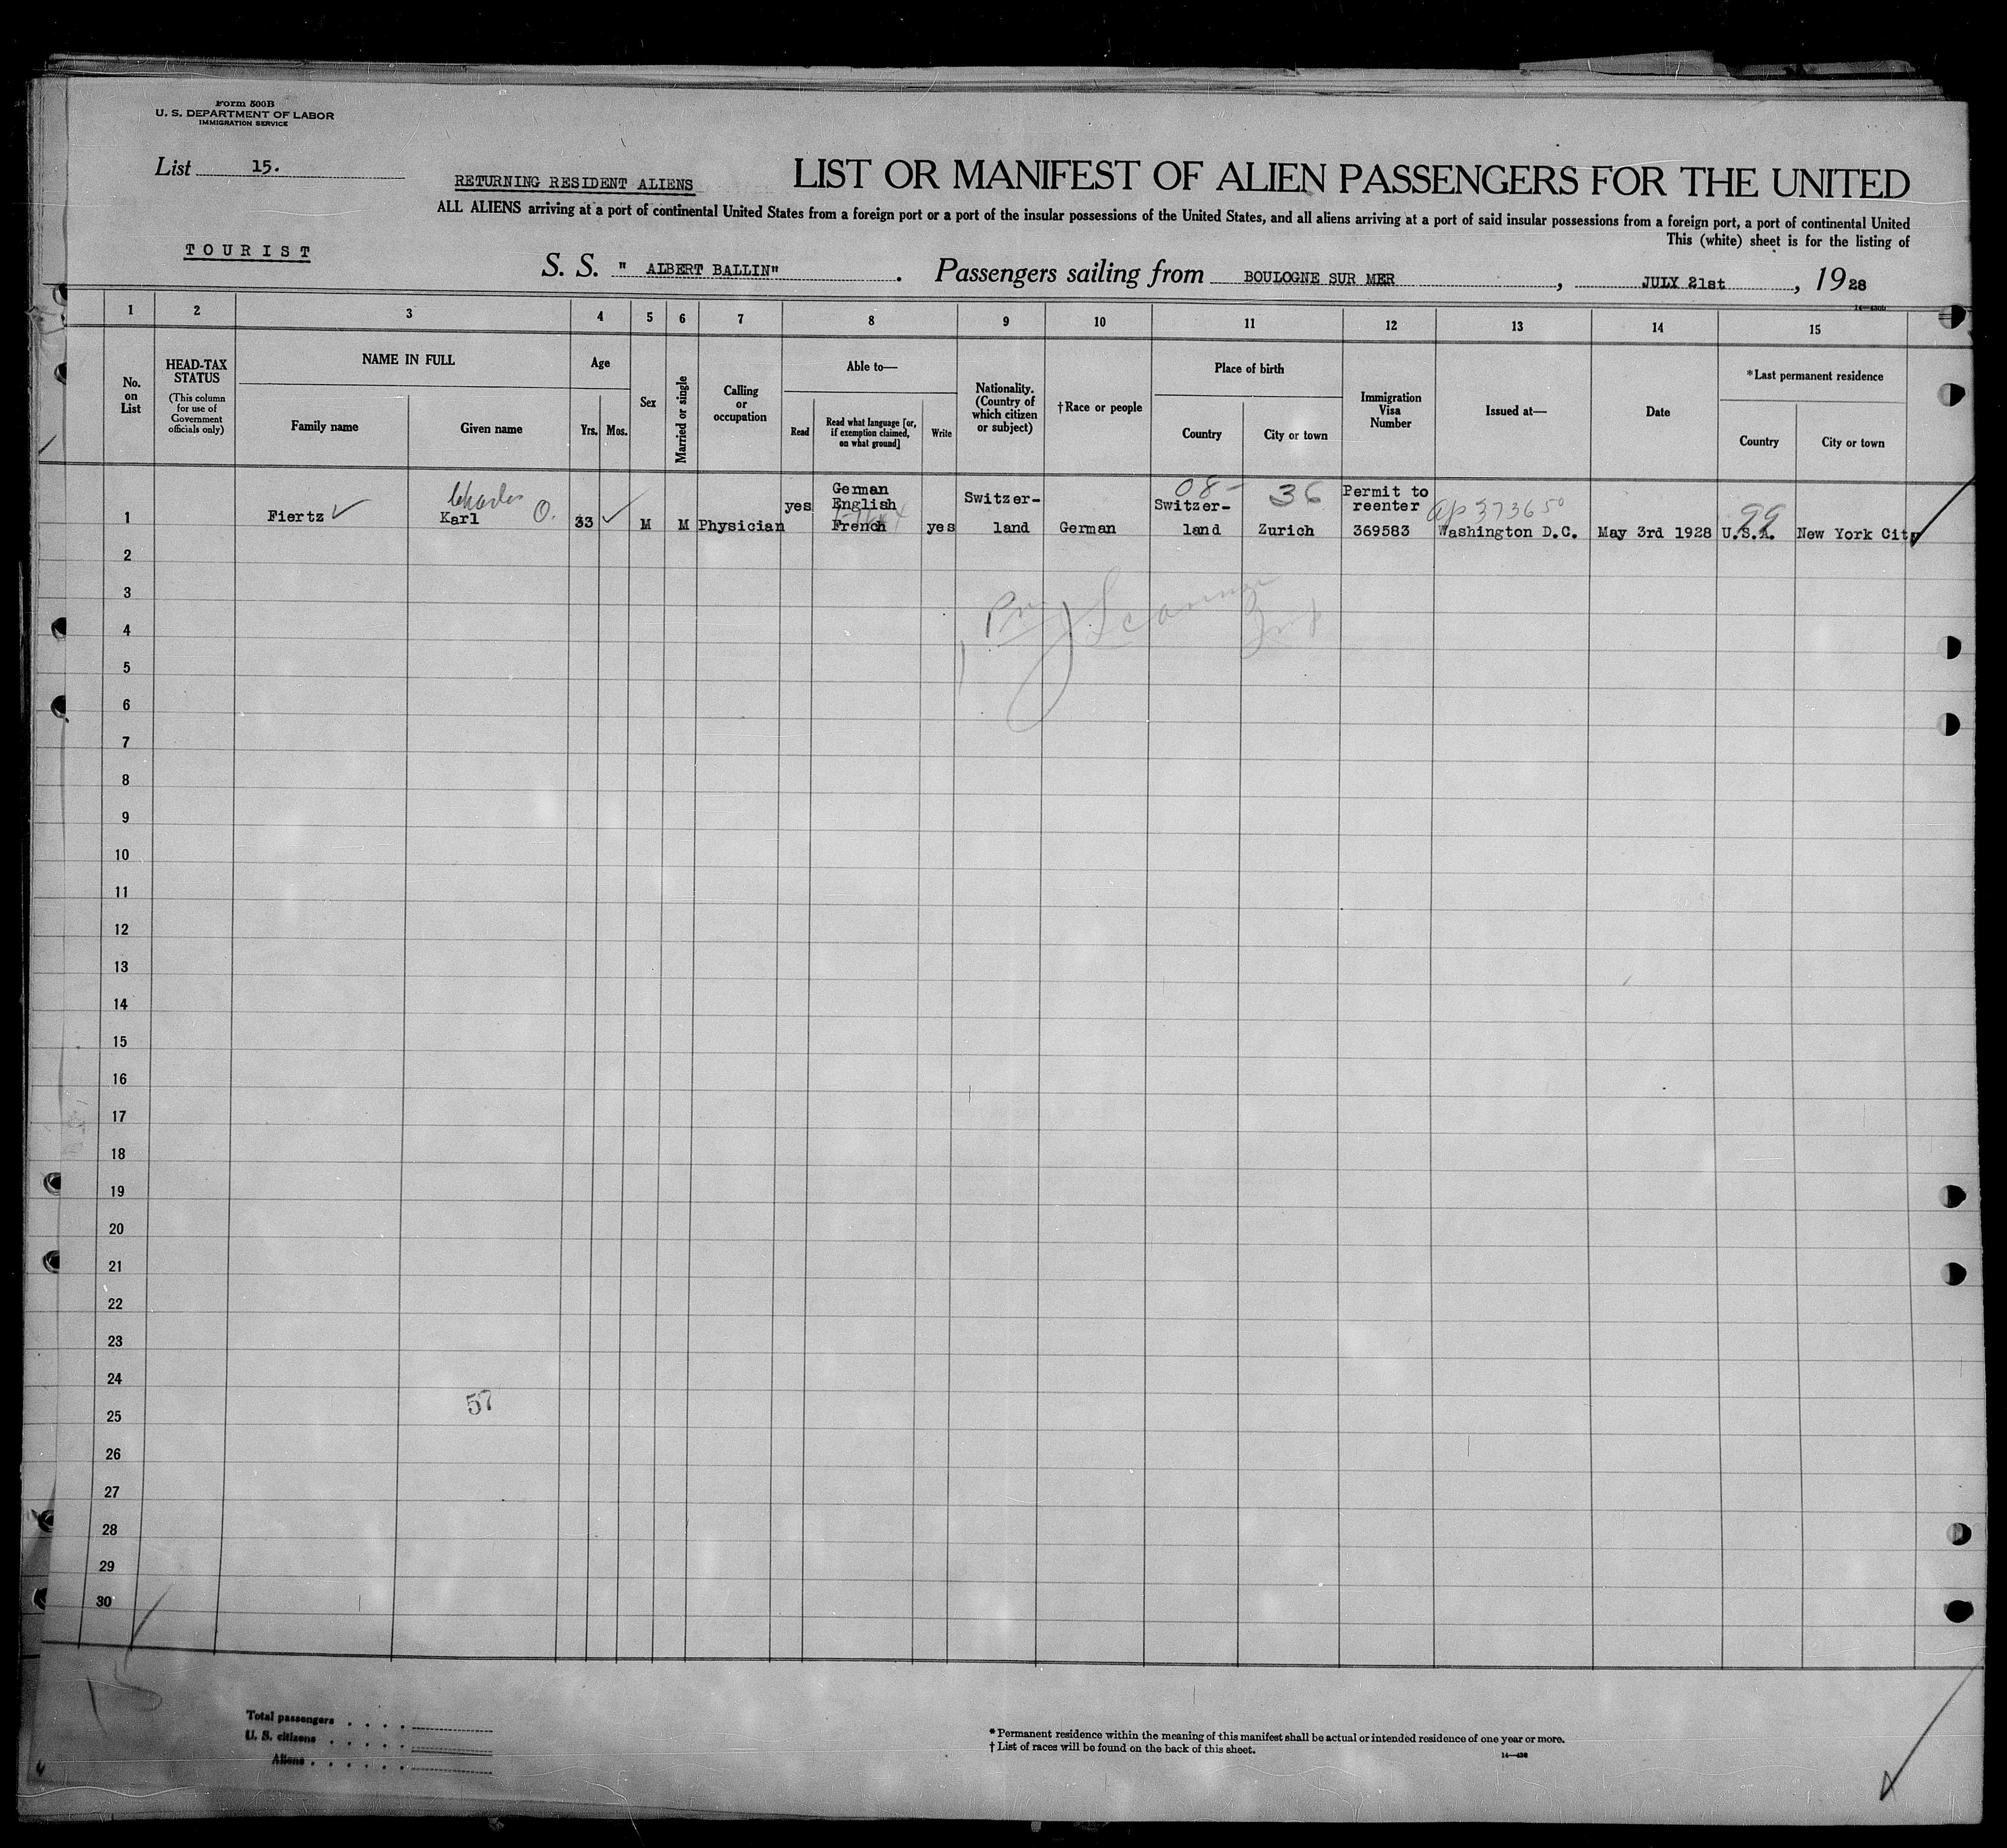 Form 500B
U. S. DEPARTMENT OF LABOR
IMMIGRATION SERVICE
List 15.
RETURNING RESIDENT ALIENS
LIST OR MANIFEST OF ALIEN PASSENGERS FOR THE UNITED
ALL ALIENS arriving at a port of continental United States from a foreign port or a port of the insular possessions of the United States, and all aliens arriving at a port of said insular possessions from a foreign port, a port of continental United
This (white) sheet is for the listing of
TOURIST
S. S. " ALBERT BALLIN" . Passengers sailing from BOULOGNE SUR MER , JULY 21st , 1928
1 2 3 4 5 6 7 8 9 10 11 12 13 14 15
No. on List
HEAD-TAX STATUS
(This column for use of Government officials only)
NAME IN FULL
Family name
Given name
Age
Yrs.
Mos.
Sex
Married or single
Calling or occupation
Able to—
Read
Read what language [or, if exemption claimed, on what ground]
Write
Nationality. (Country of which citizen or subject)
†Race or people
Place of birth
Country
City or town
Immigration Visa Number
Issued at—
Date
*Last permanent residence
Country
City or town
1 Fiertz Charles Karl O. 33 M M Physician yes German English French yes Switzer- land German 08- Switzer- land 36 Zurich Permit to reenter 369583 373650 Washington D.C. May 3rd 1928 99 U.S.A. New York City
2
3
4
5
6
7
8
9
10
11
12
13
14
15
16
17
18
19
20
21
22
23
24
57
25
26
27
28
29
30
15
Total passengers
U. S. citizens
Aliens
*Permanent residence within the meaning of this manifest shall be actual or intended residence of one year or more.
†List of races will be found on the back of this sheet.